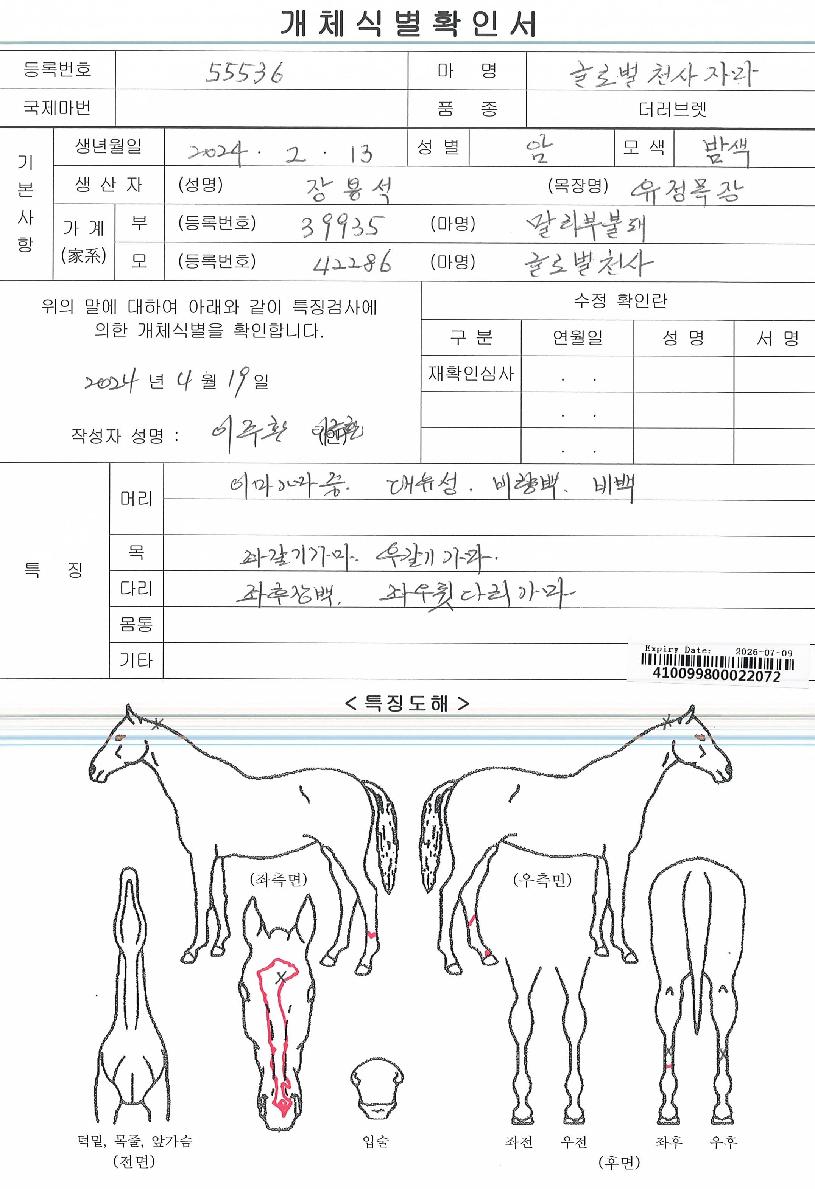 개체식별확인서
등록번호 55536 마 명 글로벌천사자라
국제마번 품 종 더러브렛
기본사항 생년월일 2024 . 2 . 13 성별 암 모색 밤색
생 산 자 (성명) 장용석 (목장명) 유정목장
가계(家系) 부 (등록번호) 39935 (마명) 말리부불패
모 (등록번호) 42286 (마명) 글로벌천사
위의 말에 대하여 아래와 같이 특징검사에
의한 개체식별을 확인합니다.
2024 년 4 월 19 일
작성자 성명 : 이주환 (인)
수정 확인란
구 분 연월일 성 명 서 명
재확인심사 . .
. .
. .
특 징
머리 이마가마중. 대유성. 비량백. 비백
목 좌갈기가마. 우갈기가마.
다리 좌후장백, 좌우뒷다리가마
몸통
기타
Expiry Date: 2026-07-09
410099800022072
<특징도해>
(좌측면) (우측면)
턱밑, 목줄, 앞가슴 입술 좌전 우전 좌후 우후
(전면) (후면)